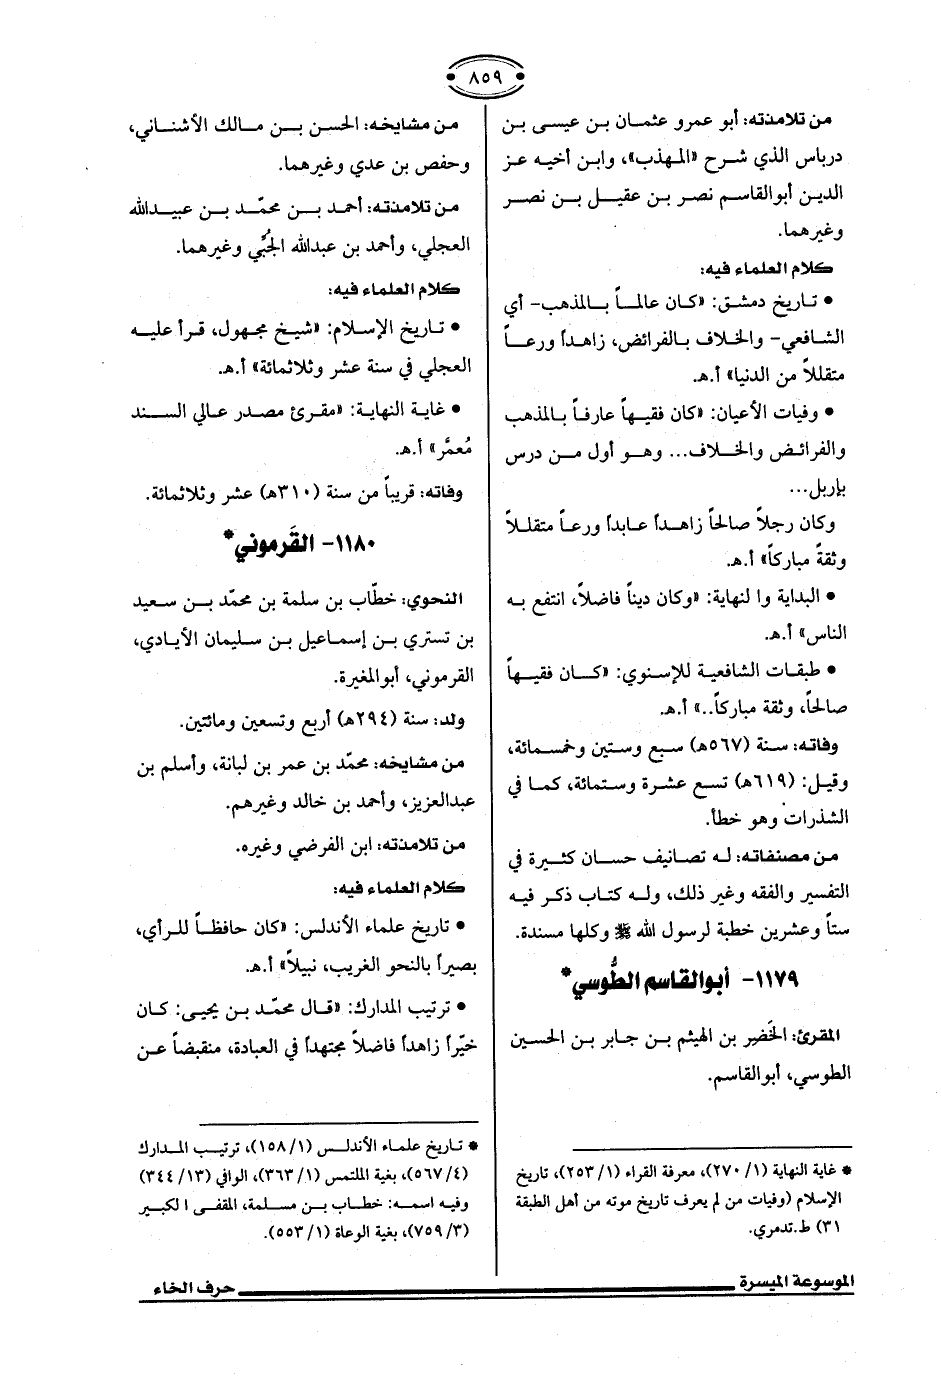 ٨٥٩
من تلامذته: أبو عمرو عثمان بن عيسى بن
درباس الذي شرح «المهذب»، وابن أخيه عز
الدين أبوالقاسم نصر بن عقيل بن نصر
وغيرهما.
كلام العلماء فيه:
• تاريخ دمشق: «كان عالماً بالمذهب- أي
الشافعي- والخلاف بالفرائض، زاهداً ورعاً
متقللاً من الدنيا» أ.هـ.
• وفيات الأعيان: «كان فقيهاً عارفاً بالمذهب
والفرائض والخلاف... وهو أول من درس
بإربل...
وكان رجلاً صالحاً زاهداً عابداً ورعاً متقللاً
وثقةً مباركاً» أ.هـ.
• البداية وا لنهاية: «وكان ديناً فاضلاً، انتفع به
الناس» أ.هـ.
• طبقات الشافعية للإسنوي: «كان فقيهاً
صالحاً، وثقة مباركاً..» أ.هـ.
وفاته: سنة (٥٦٧هـ) سبع وستين وخمسمائة،
وقيل: (٦١٩هـ) تسع عشرة وستمائة، كما في
الشذرات وهو خطأ.
من مصنفاته: له تصانيف حسان كثيرة في
التفسير والفقه وغير ذلك، وله كتاب ذكر فيه
ستاً وعشرين خطبة لرسول الله ﷺ وكلها مسندة.
١١٧٩- أبوالقاسم الطُّوسي*
المقرئ: الخَضِر بن الهيثم بن جابر بن الحسين
الطوسي، أبوالقاسم.
* غاية النهاية (١/ ٢٧٠)، معرفة القراء (١/ ٢٥٣)، تاريخ
الإسلام (وفيات من لم يعرف تاريخ موته من أهل الطبقة
٣١) ط.تدمري.
من مشايخه: الحسن بن مالك الأشناني،
وحفص بن عدي وغيرهما.
من تلامذته: أحمد بن محمّد بن عبيدالله
العجلي، وأحمد بن عبدالله الجُبِّي وغيرهما.
كلام العلماء فيه:
• تاريخ الإسلام: «شيخ مجهول، قرأ عليه
العجلي في سنة عشر وثلاثمائة» أ.هـ.
• غاية النهاية: «مقرئ مصدر عالي السند
مُعمَّر» أ.هـ.
وفاته: قريباً من سنة (٣١٠هـ) عشر وثلاثمائة.
١١٨٠- القَرموني*
النحوي: خطّاب بن سلمة بن محمّد بن سعيد
بن تستري بن إسماعيل بن سليمان الأيادي،
القرموني، أبوالمغيرة.
ولد: سنة (٢٩٤هـ) أربع وتسعين ومائتين.
من مشايخه: محمّد بن عمر بن لبانة، وأسلم بن
عبدالعزيز، وأحمد بن خالد وغيرهم.
من تلامذته: ابن الفرضي وغيره.
كلام العلماء فيه:
• تاريخ علماء الأندلس: «كان حافظاً للرأي،
بصيراً بالنحو الغريب، نبيلاً» أ.هـ.
• ترتيب المدارك: «قال محمّد بن يحيى: كان
خيّراً زاهداً فاضلاً مجتهداً في العبادة، منقبضاً عن
* تاريخ علماء الأندلس (١/ ١٥٨)، ترتيب المدارك
(٤/ ٥٦٧)، بغية الملتمس (١/ ٣٦٣)، الوافي (١٣/ ٣٤٤)
وفيه اسمه: خطاب بن مسلمة، المقفى ا لكبير
(٣/ ٧٥٩)، بغية الوعاة (١/ ٥٥٣).
الموسوعة الميسرة
حرف الخاء